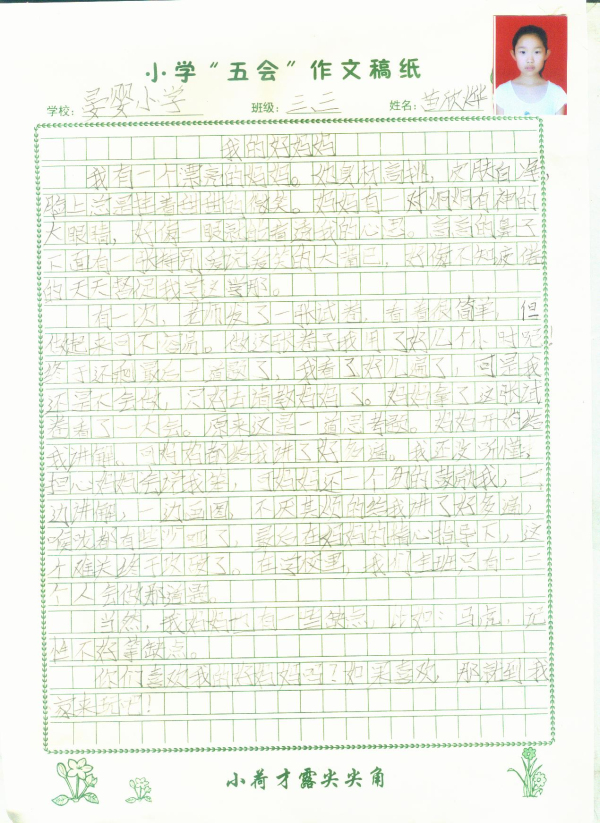 小学“五会”作文稿纸
学校：晏婴小学 班级：三三 姓名：苗欣烨
我的好妈妈
我有一个漂亮的妈妈。她身材高挑，皮肤白净，
脸上总是挂着甜甜的微笑。妈妈有一对炯炯有神的
大眼睛，好像一眼就能看透我的心思。高高的鼻子
下面有一张特别爱说爱笑的大嘴巴，好像不知疲倦
的天天督促我写这写那。
有一次，老师发了一张试卷，看着很简单，但
做起来可不容易。做这张卷子我用了好几个小时呢！
终于还剩最后一道题了，我看了好几遍了，可是我
还是不会做，只好去请教妈妈了。妈妈拿了这张试
卷看了一大会。原来这是一道思考题。妈妈开始给
我讲解。可妈妈都给我讲了好多遍。我还没听懂，
担心妈妈会说我笨，可妈妈还一个劲的鼓励我，一
边讲解，一边画图，不厌其烦的给我讲了好多遍，
喉咙都有些沙哑了，最后在妈妈的精心指导下，这
个难关终于攻破了。在学校里，我们全班只有一二
个人会做那道题。
当然，我妈妈也有一些缺点，比如：马虎，记
性不好等缺点。
你们喜欢我的好妈妈吗？如果喜欢，那就到我
家来玩吧！
小荷才露尖尖角